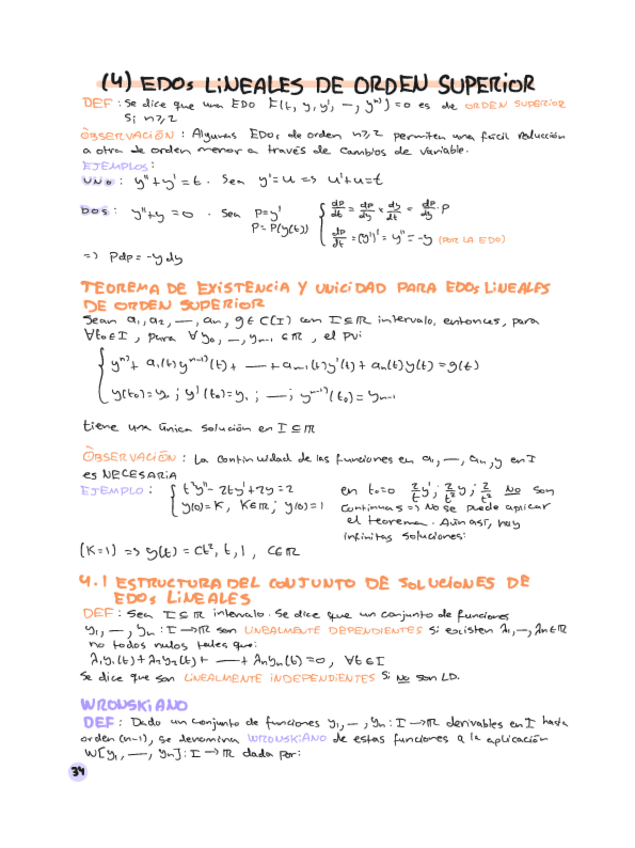 (4) EDOs LINEALES DE ORDEN SUPERIOR
DEF: Se dice que una EDO F(t, y, y', —, yⁿ⁾) = 0 es de ORDEN SUPERIOR
si n ≥ 2
OBSERVACIÓN: Algunas EDOs de orden n ≥ 2 permiten una fácil reducción
a otra de orden menor a través de cambios de variable.
EJEMPLOS:
UNO: y'' + y' = t. Sea y' = u => u' + u = t
DOS: y'' + y = 0. Sea p = y'
P = P(y(t))
dp/dt = dp/dy × dy/dt = dp/dy · P
dp/dt = (y')' = y'' = -y (POR LA EDO)
=> Pdp = -y dy
TEOREMA DE EXISTENCIA Y UNICIDAD PARA EDOs LINEALES
DE ORDEN SUPERIOR
Sean a₁, a₂, —, aₙ, g ∈ C(I) con I ⊆ ℝ intervalo, entonces, para
∀t₀ ∈ I, para ∀y₀, —, yₙ₋₁ ∈ ℝ, el PVI:
yⁿ⁾ + a₁(t) yⁿ⁻¹⁾(t) + — + aₙ₋₁(t) y'(t) + aₙ(t) y(t) = g(t)
y(t₀) = y₀; y'(t₀) = y₁; —; yⁿ⁻¹⁾(t₀) = yₙ₋₁
tiene una única solución en I ⊆ ℝ
OBSERVACIÓN: La continuidad de las funciones en a₁, —, aₙ, y en I
es NECESARIA
EJEMPLO: t²y'' - 2ty' + 2y = 2
y(0) = K, K ∈ ℝ; y'(0) = 1
en t₀ = 0 2/t y'; 2/t² y; 2/t² NO son
continuas => No se puede aplicar
el teorema. Aún así, hay
infinitas soluciones:
(K=1) => y(t) = Ct², t, 1, C ∈ ℝ
4.1 ESTRUCTURA DEL CONJUNTO DE SOLUCIONES DE
EDOs LINEALES
DEF: Sea I ⊆ ℝ intervalo. Se dice que un conjunto de funciones
y₁, —, yₙ: I → ℝ son LINEALMENTE DEPENDIENTES si existen λ₁, —, λₙ ∈ ℝ
no todos nulos tales que:
λ₁y₁(t) + λ₂y₂(t) + — + λₙyₙ(t) = 0, ∀t ∈ I
Se dice que son LINEALMENTE INDEPENDIENTES si NO son LD.
WRONSKIANO
DEF: Dado un conjunto de funciones y₁, —, yₙ: I → ℝ derivables en I hasta
orden (n-1), se denomina WRONSKIANO de estas funciones a la aplicación
W[y₁, —, yₙ]: I → ℝ dada por:
34